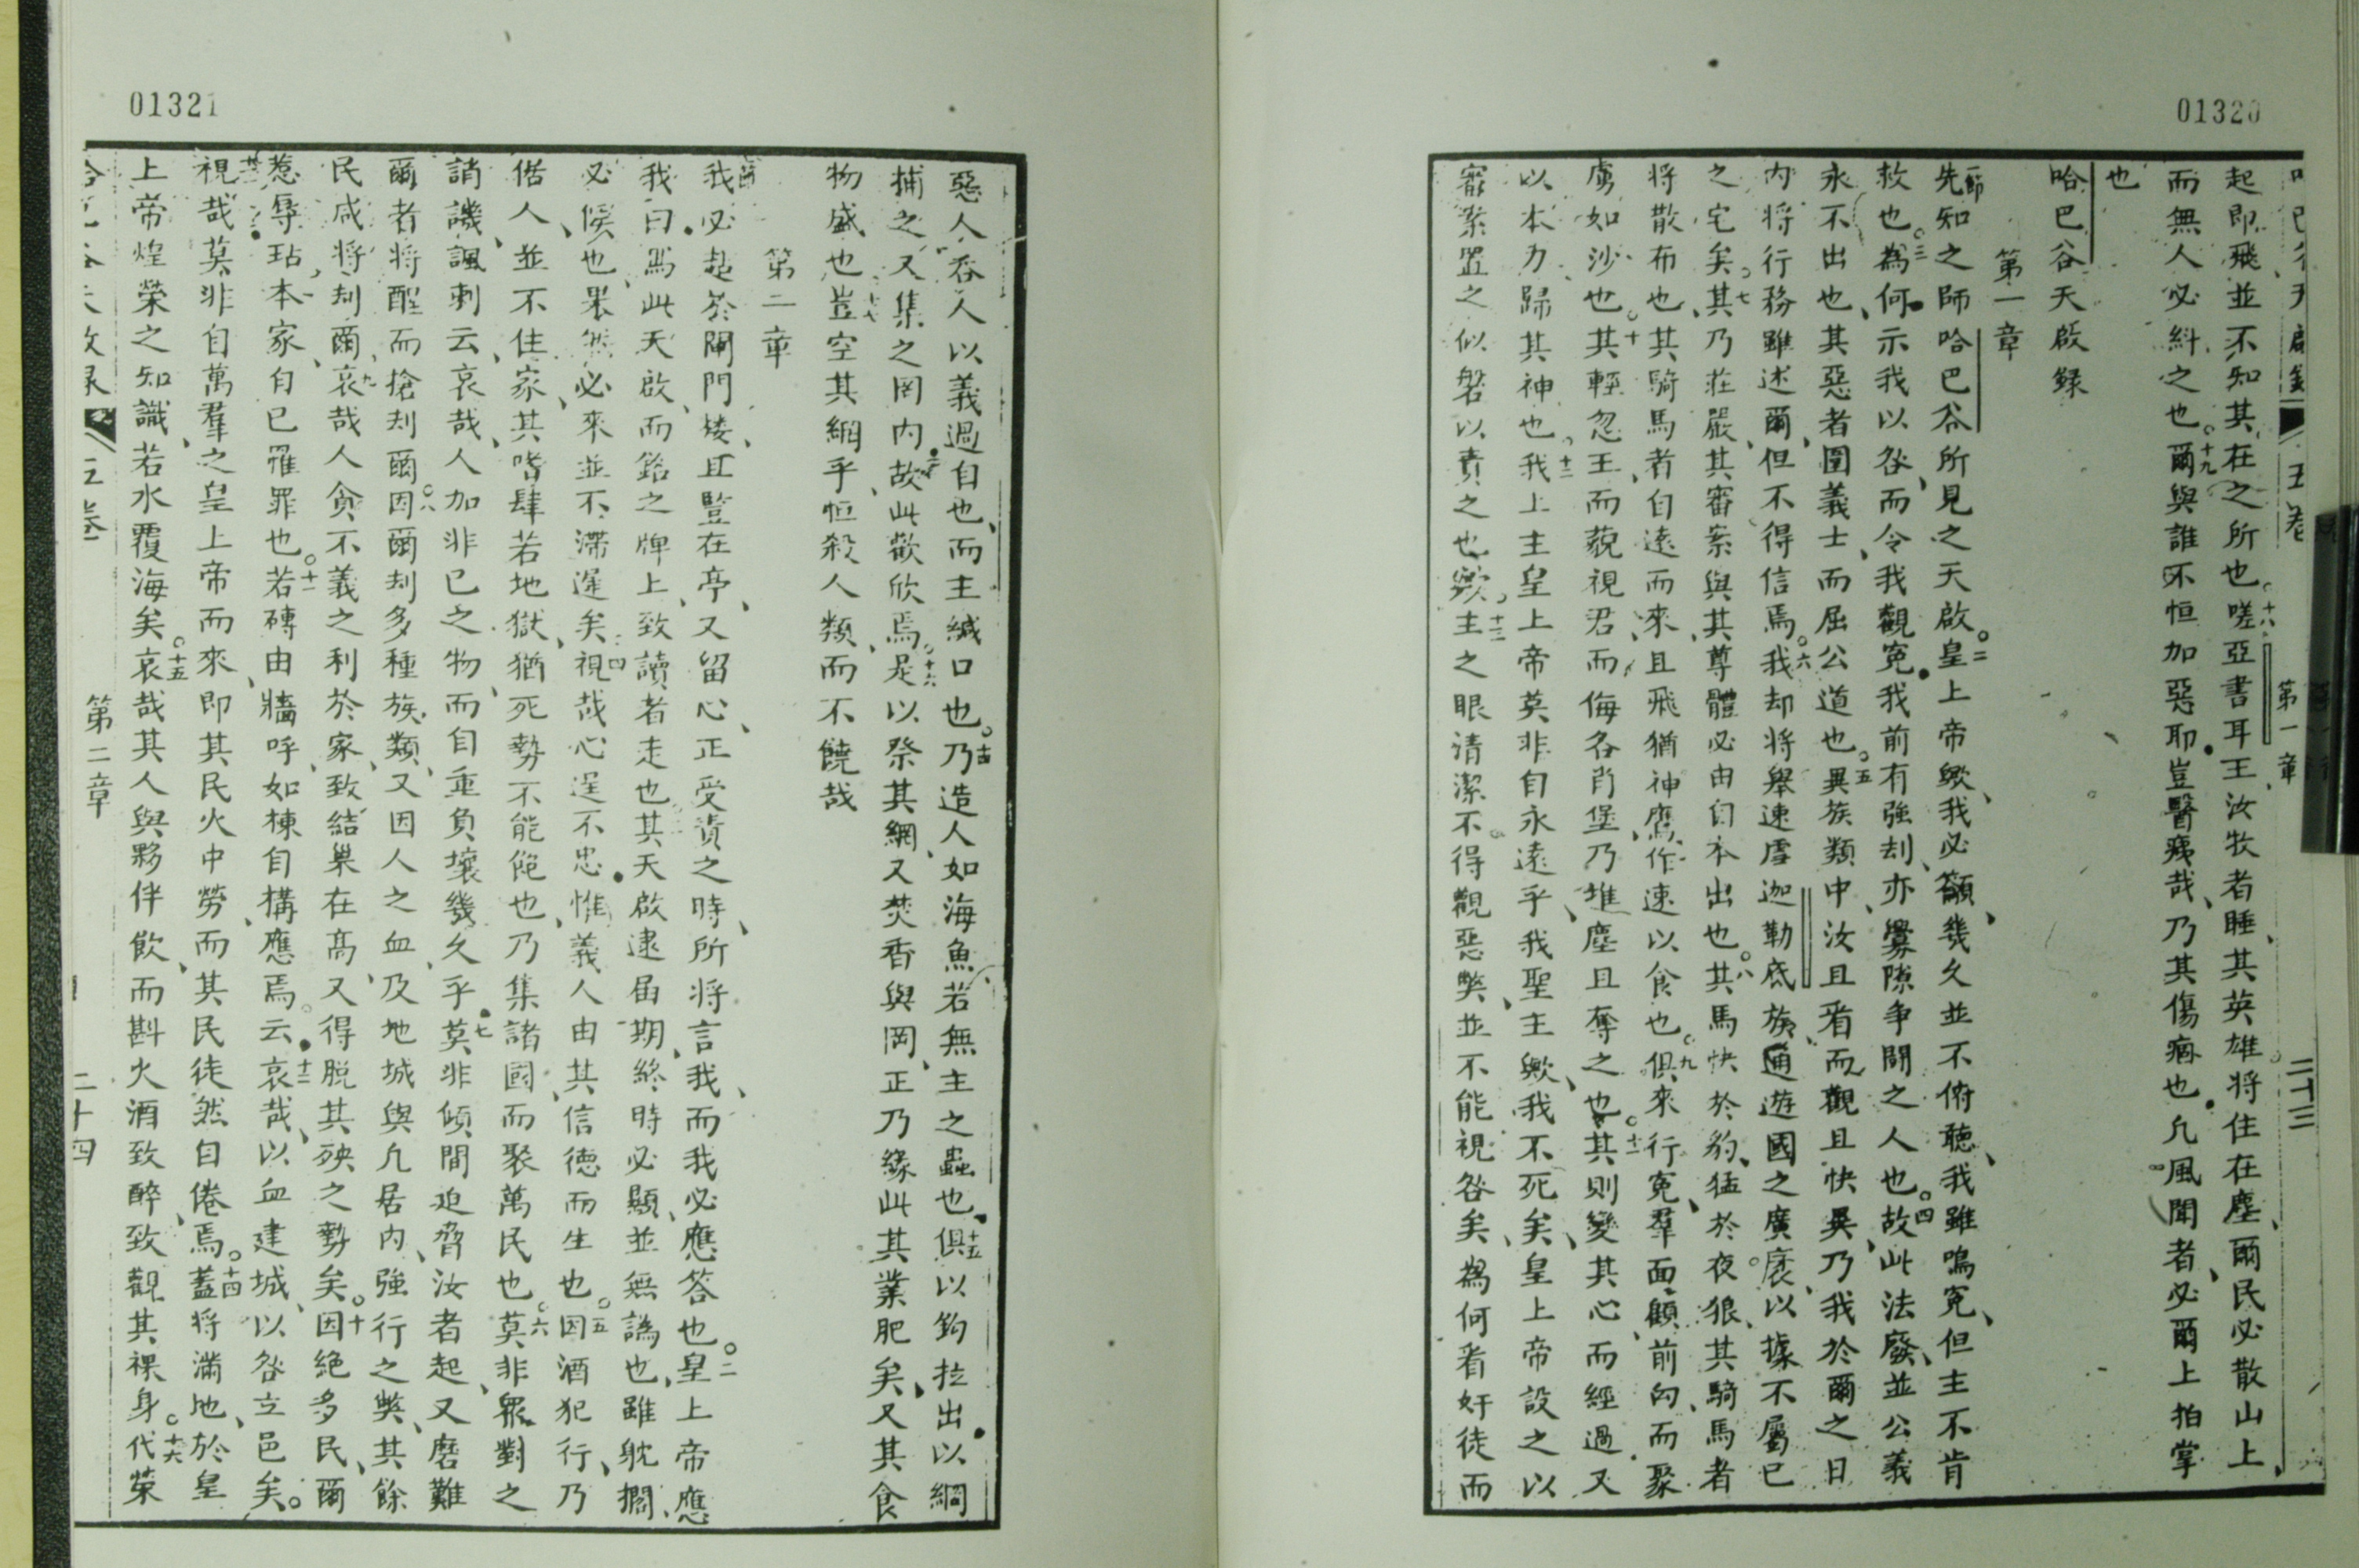 01320
五卷 第一章 二十三
起即飛、並不知其在之所也。十八嗟亞書耳王、汝牧者睡、其英雄將住在塵、爾民必散山上、
而無人必斜之也。十九爾與誰不恒加惡耶、豈醫痍哉、乃其傷痛也、凡風聞者、必爾上拍掌
也
哈巴谷天啟錄
第一章
一節先知之師哈巴谷所見之天啟。二皇上帝歟、我必籲幾久、並不俯聽、我雖鳴冤、但主不肯
救也。三為何示我以咎、而令我觀冤、我前有強刦、亦釁隙爭鬪之人也。四故此法廢、並公義
永不出也、其惡者圍義士、而屈公道也。五異族類中、汝且看而觀且快異、乃我於爾之日
內將行務、雖述爾、但不得信焉。六我却將舉速虐迦勒底族、通遊國之廣袤、以據不屬已
之宅矣。七其乃莊嚴、其審案與其尊體必由自本出也。八其馬快於豹、猛於夜狼、其騎馬者
將散布也、其騎馬者自遠而來、且飛猶神鷹、作速以食也。九俱來行冤、羣面顧前向、而聚
虜如沙也。十其輕忽王、而藐視君、而侮各肖堡、乃堆塵且奪之也。十一其則變其心、而經過又
以本力歸其神也。十二我上主皇上帝、莫非自永遠乎、我聖主歟、我不死矣、皇上帝設之以
審案、置之似磐以責之也歟。十三主之眼清潔、不得觀惡獘、並不能視咎矣、為何看奸徒而
01321
惡人吞人以義過自也、而主緘口也。十四乃造人如海魚、若無主之蟲也、十五俱以鈎拉出、以網
捕之、又集之罔內、故此歡欣焉。十六是以祭其網、又焚香與罔、正乃緣此其業肥矣、又其食
物盛也。十七豈空其網乎、恒殺人類、而不饒哉
第二章
一節我必起於闡門樓、且豎在亭、又留心、正受責之時、所將言我、而我必應答也。二皇上帝應
我曰、寫此天啟、而銘之牌上、致讀者走也。三其天啟逮屆期、終時必顯、並無譌也、雖躭擱、
必候也、果然必來、並不滯遲矣。四視哉、心逞不忠、惟義人由其信德而生也。五因酒犯行、乃
倨人、並不住家、其嗜肆若地獄、猶死勢不能飽也、乃集諸國、而聚萬民也。六莫非衆對之
誚譏、諷刺云、哀哉、人加非已之物、而自重負壞幾久乎。七莫非傾間迫脅汝者起、又磨難
爾者將醒、而搶刦爾。八因爾刦多種族類、又因人之血、及地城與凡居內、強行之獘、其餘
民咸將刦爾。九哀哉、人貪不義之利於家、致結巢在高、又得脫其殃之勢矣。十因絕多民、爾
惹辱玷本家、自已罹罪也。十一若磚由牆呼、如棟自構應焉。十二云哀哉、以血建城、以咎立邑矣。
十三視哉、莫非自萬羣之皇上帝而來、即其民火中勞、而其民徒然自倦焉。十四蓋將滿地、於皇
上帝煌榮之知識、若水覆海矣。十五哀哉、其人與夥伴飲、而斟火酒致醉、致觀其裸身。十六代榮
五卷 第二章 二十四